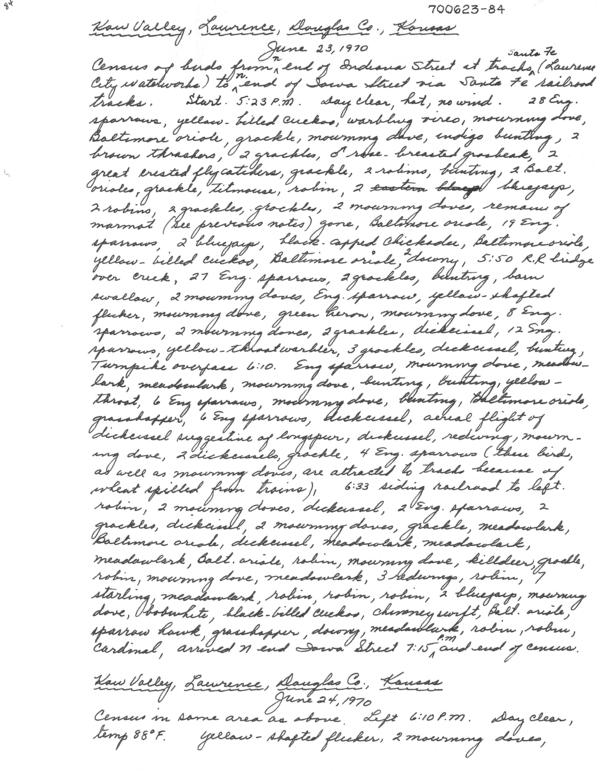 700623-84
84
Kaw Valley, Lawrence, Douglas Co., Kansas
June 23, 1970
Census of birds from n end of Indiana Street at Santa Fe tracks (Lawrence
City Waterworks) to n. end of Iowa Street via Santa Fe railroad
tracks. Start 5:23 P.M. Day clear, hot, no wind. 28 Eng.
sparrows, yellow-billed cuckoo, warbling vireo, mourning dove,
Baltimore oriole, grackle, mourning dove, indigo bunting, 2
brown thrashers, 2 grackles, ♂ rose-breasted grosbeak, 2
great crested flycatchers, grackle, 2 robins, bunting, 2 Balt.
orioles, grackle, titmouse, robin, 2 eastern bluejay bluejays,
2 robins, 2 grackles, grackles, 2 mourning doves, remains of
marmot (see previous notes) gone, Baltimore oriole, 19 Eng.
sparrows, 2 bluejays, black-capped chickadee, Baltimore oriole,
yellow-billed cuckoo, Baltimore oriole, 2 downy, 5:50 R.R bridge
over creek, 27 Eng. sparrows, 2 grackles, bunting, barn
swallow, 2 mourning doves, Eng. sparrow, yellow-shafted
flicker, mourning dove, green heron, mourning dove, 8 Eng.
sparrows, 2 mourning doves, 2 grackles, dickcissel, 12 Eng.
sparrows, yellow-throat warbler, 3 grackles, dickcissel, bunting,
Turnpike overpass 6:10. Eng sparrow, mourning dove, meadow-
lark, meadowlark, mourning dove, bunting, bunting, yellow-
throat, 6 Eng sparrows, mourning dove, bunting, Baltimore oriole,
grasshopper, 6 Eng sparrows, dickcissel, aerial flight of
dickcissel suggestive of longspur, dickcissel, redwing, mourn-
ing dove, 2 dickcissels, grackle, 4 Eng. sparrows (these birds,
as well as mourning doves, are attracted to track because of
wheat spilled from trains), 6:33 siding railroad to left.
robin, 2 mourning doves, dickcissel, 2 Eng. sparrows, 2
grackles, dickcissel, 2 mourning doves, grackle, meadowlark,
Baltimore oriole, dickcissel, meadowlark, meadowlark,
meadowlark, Balt. oriole, robin, mourning dove, killdeer, grackle,
robin, mourning dove, meadowlark, 3 redwings, robin, 7
starling, meadowlark, robin, robin, robin, 2 bluejays, mourning
dove, bobwhite, black-billed cuckoo, chimney swift, Balt. oriole,
sparrow hawk, grasshopper, downy, meadowlark, robin, robin,
cardinal, arrived n end Iowa Street 7:15 P.M. and end of census.
Kaw Valley, Lawrence, Douglas Co., Kansas
June 24, 1970
Census in same area as above. Left 6:10 P.M. Day clear,
temp 88°F. Yellow-shafted flicker, 2 mourning doves,